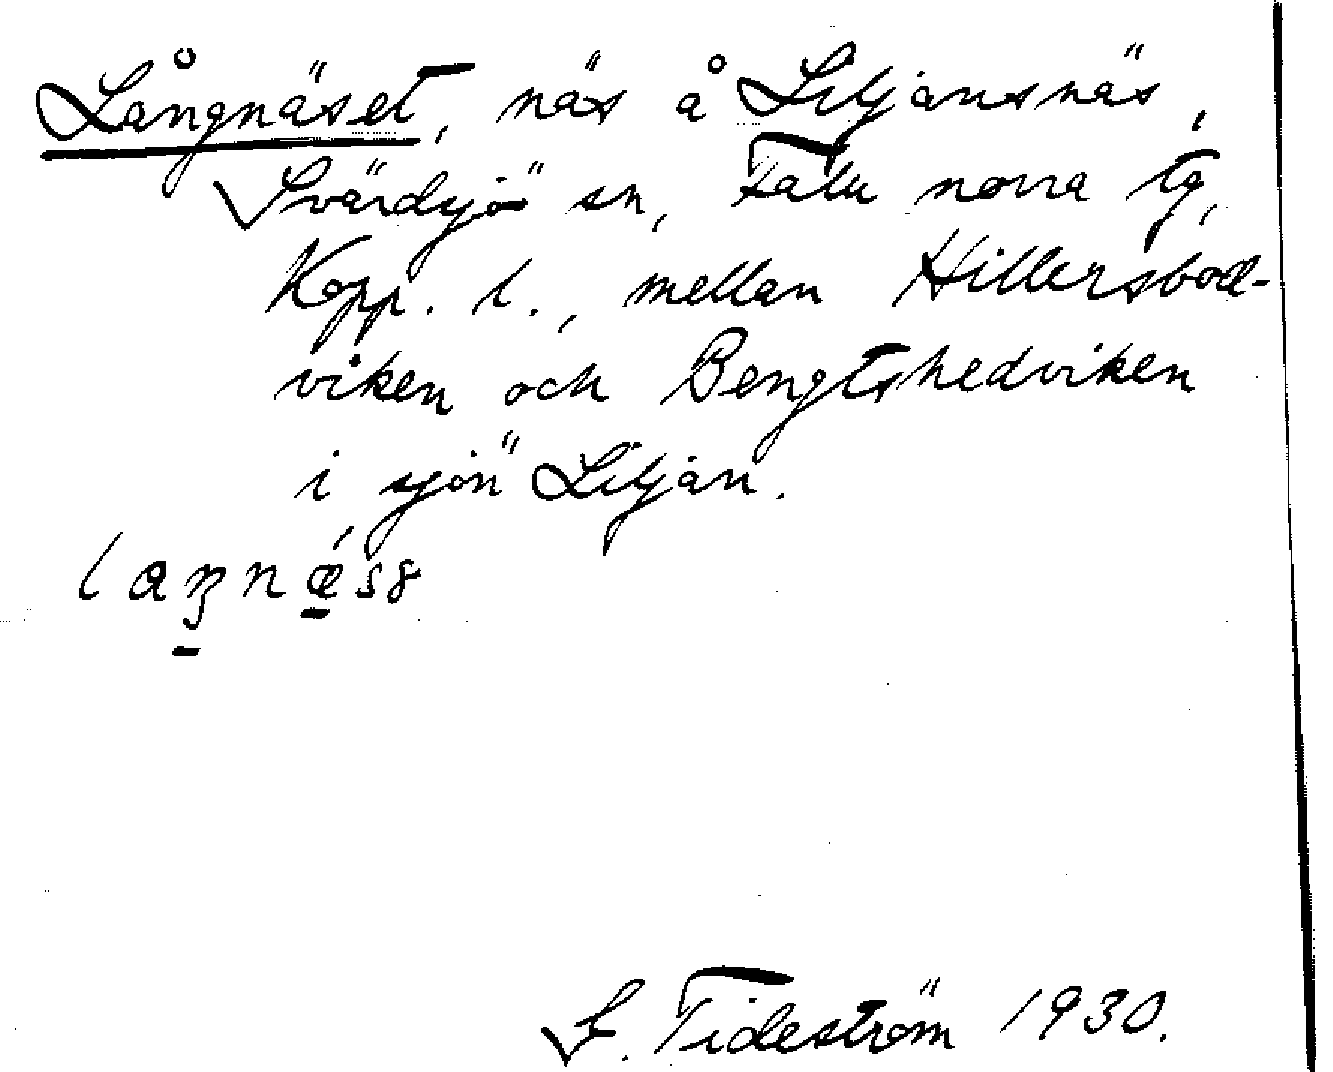 Långnäset, näs å Liljansnäs,
Svärdsjö sn, Falu norra tg,
Kopp. l., mellan Hillersbod-
viken och Bengtshedviken
i sjön Liljan.
S. Tideström 1930.